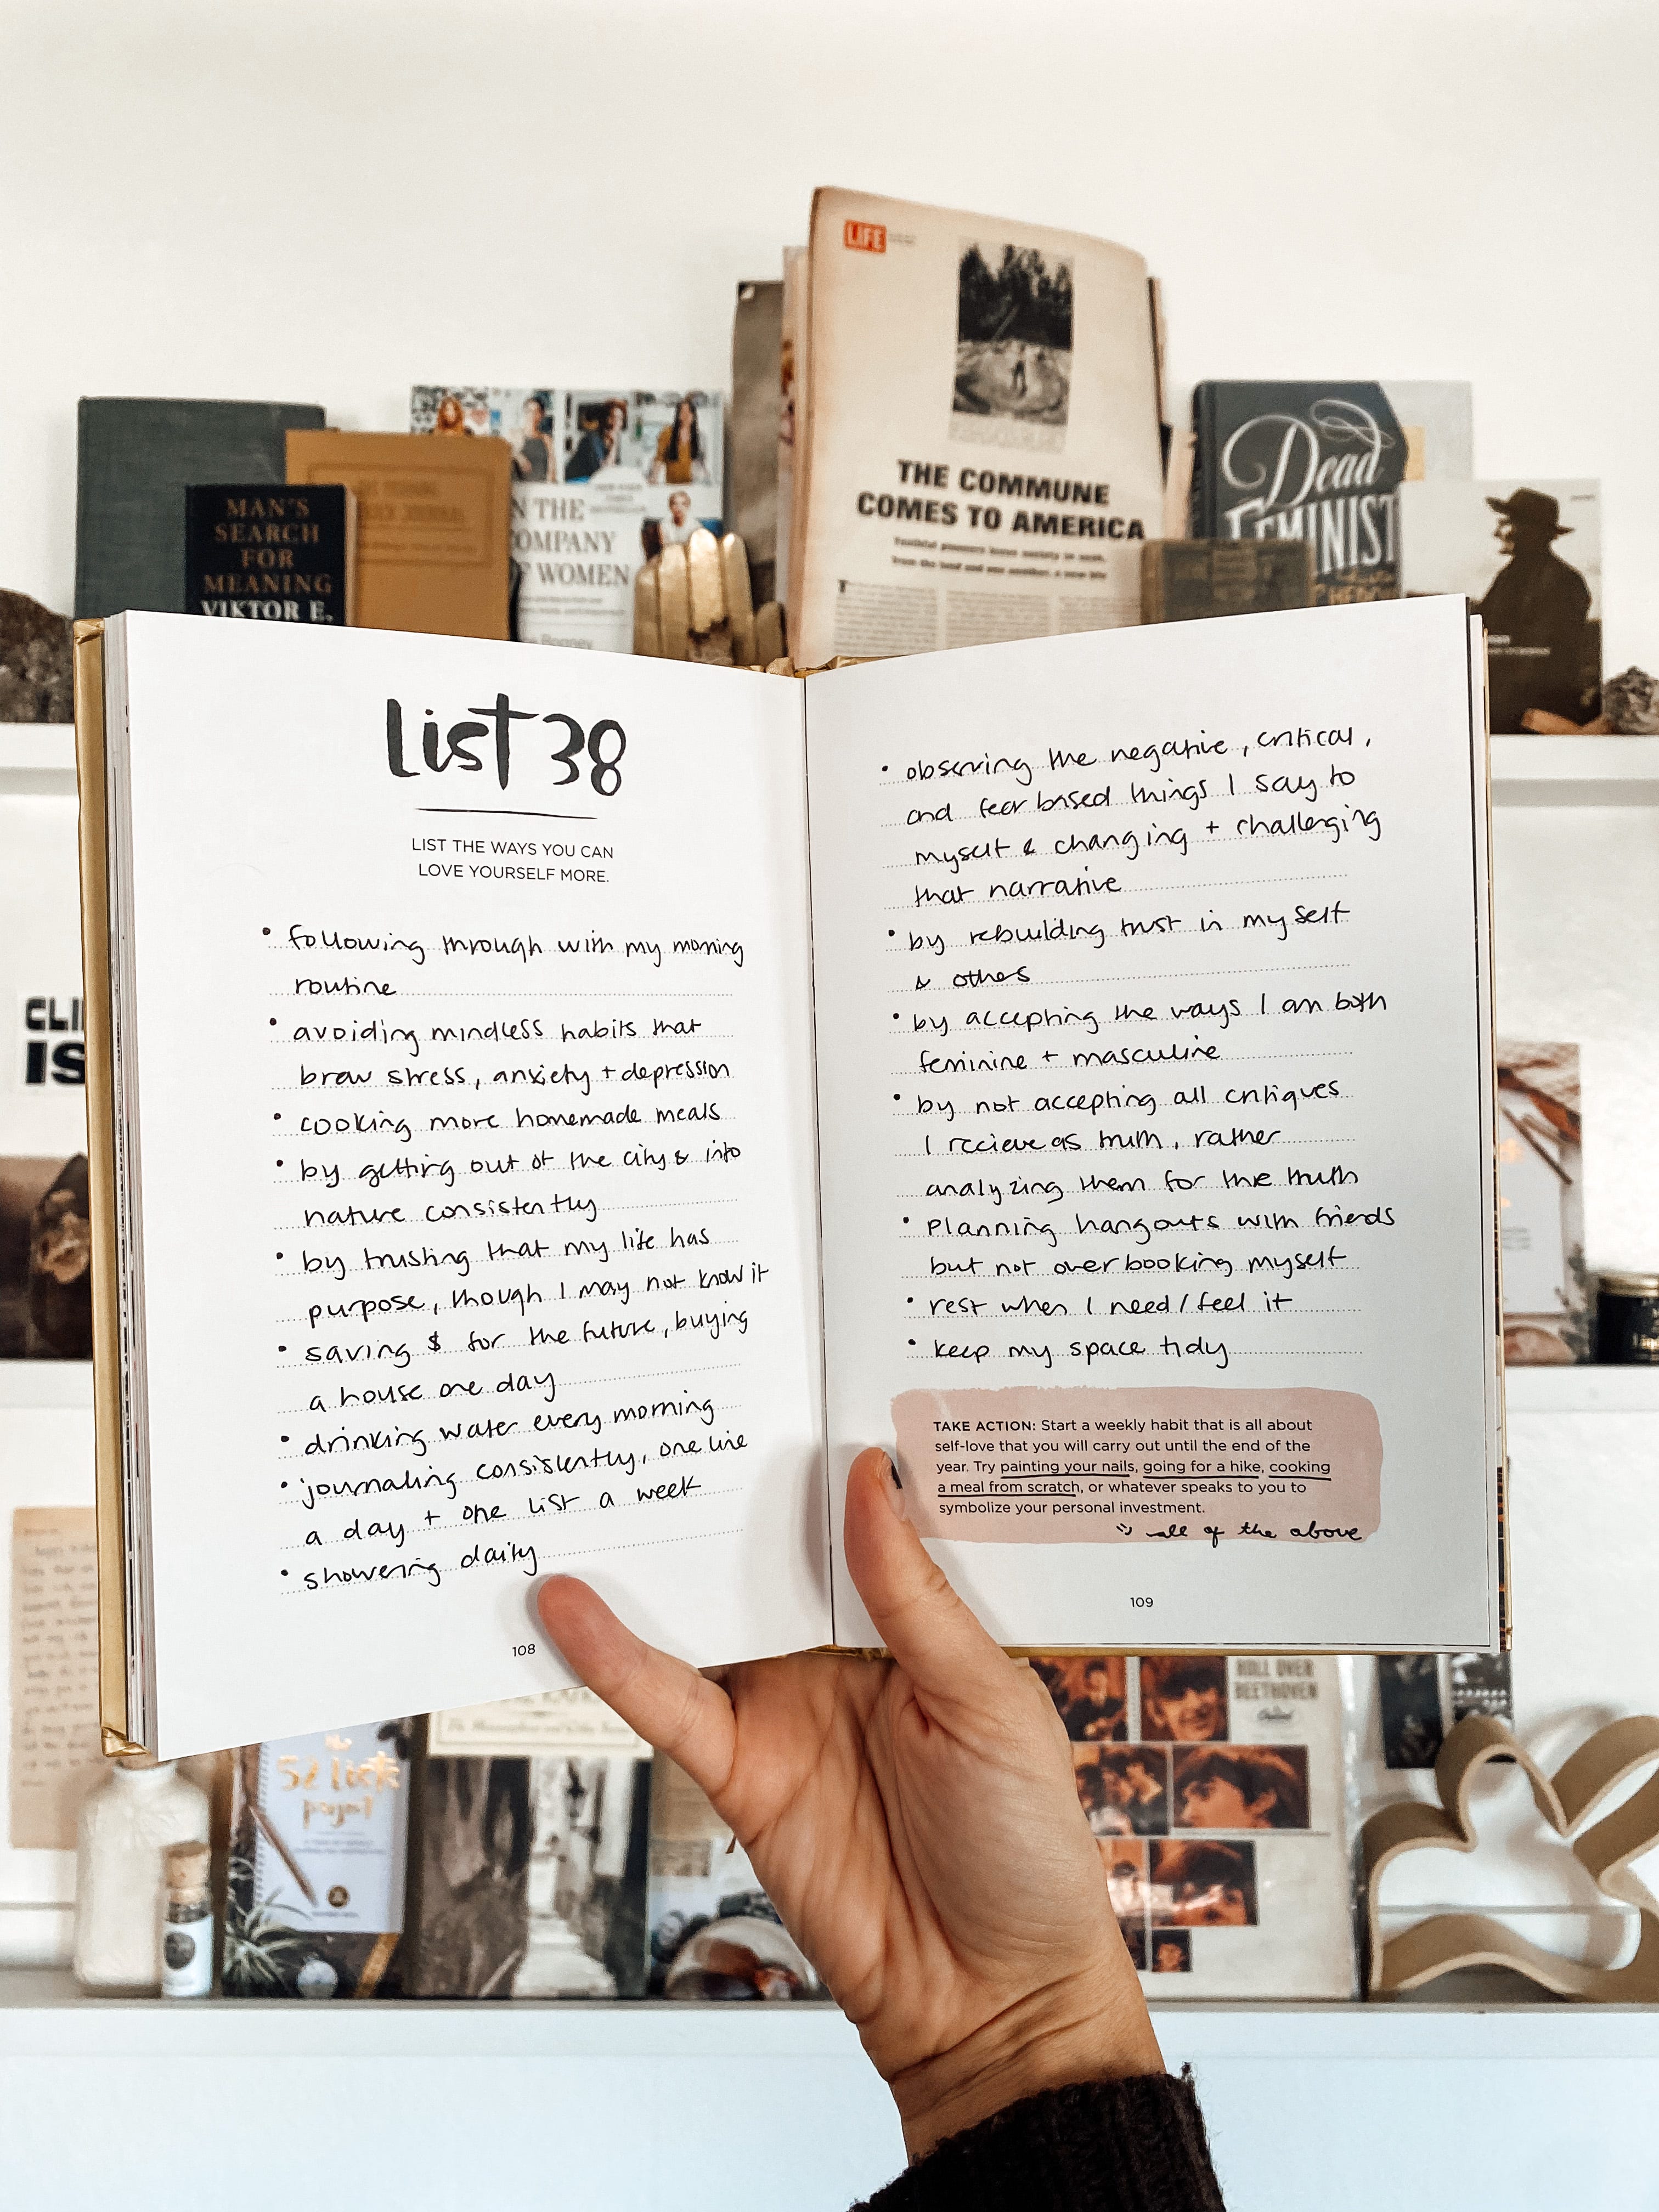 LIFE
THE COMMUNE
COMES TO AMERICA
Dead
FEMINIST
MAN'S
SEARCH
FOR
MEANING
VIKTOR E.
N THE
OMPANY
F WOMEN
CLI
IS
List 38
LIST THE WAYS YOU CAN
LOVE YOURSELF MORE.
• following through with my morning
routine
• avoiding mindless habits that
brew stress, anxiety + depression
• cooking more homemade meals
• by getting out of the city & into
nature consistently
• by trusting that my life has
purpose, though I may not know it
• saving $ for the future, buying
a house one day
• drinking water every morning
• journaling consistently, one line
a day + one list a week
• showering daily
108
• observing the negative, critical,
and fear based things I say to
myself & changing + challenging
that narrative
• by rebuilding trust in myself
& others
• by accepting the ways I am both
feminine + masculine
• by not accepting all critiques
I recieve as truth, rather
analyzing them for the truth
• planning hangouts with friends
but not overbooking myself
• rest when I need/feel it
• keep my space tidy
TAKE ACTION: Start a weekly habit that is all about
self-love that you will carry out until the end of the
year. Try painting your nails, going for a hike, cooking
a meal from scratch, or whatever speaks to you to
symbolize your personal investment.
all of the above
109
52 Lists
project
ROLL OVER
BEETHOVEN
Capitol